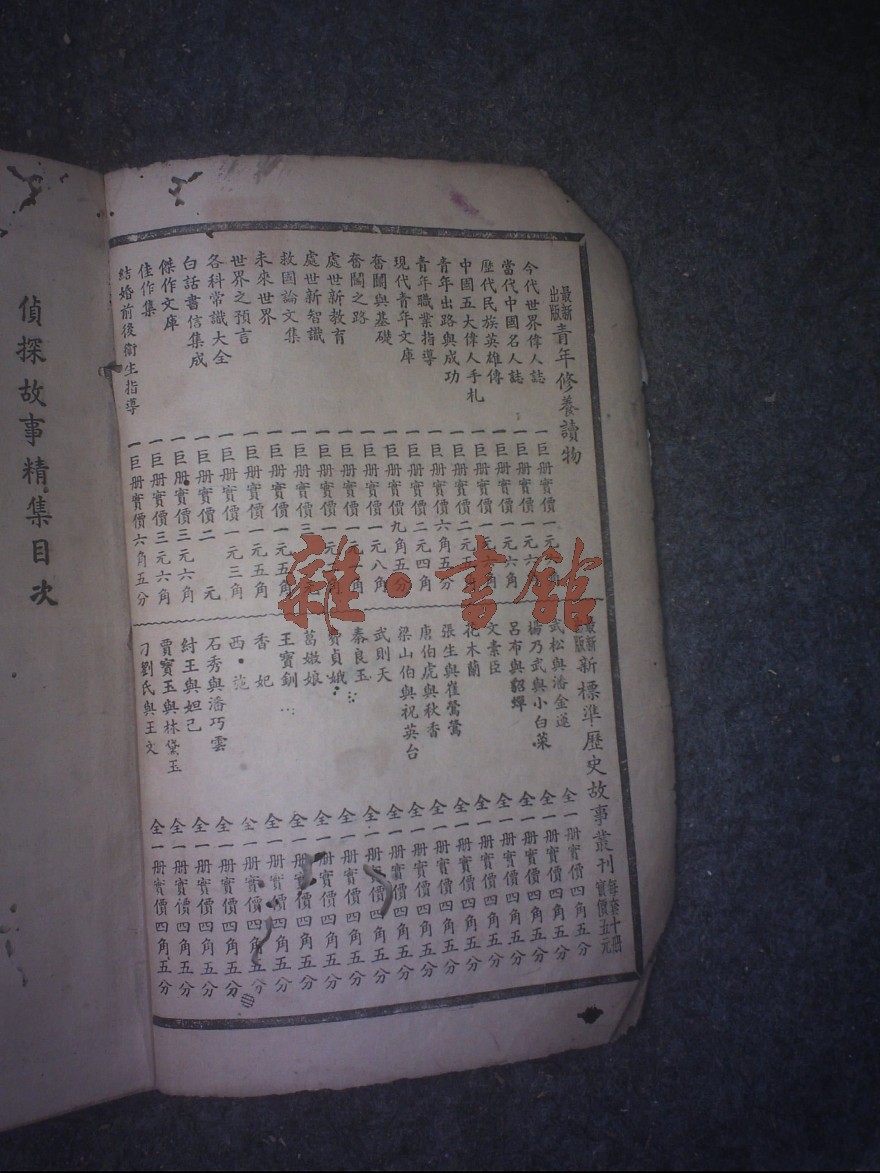 最新出版 青年修養讀物
今代世界偉人誌 一巨册實價一元角
當代中國名人誌 一巨册實價一元六角
歷代民族英雄傳 一巨册實價一元六角
中國五大偉人手札 一巨册實價一元角
青年出路與成功 一巨册實價二元五
青年職業指導 一巨册實價六角五分
現代青年文庫 一巨册實價二元四角
奮鬭與基礎 一巨册實價九角五分
奮鬭之路 一巨册實價一元八角
處世新教育 一巨册實價一元角
處世新智識 一巨册實價一元
救國論文集 一巨册實價三
未來世界 一巨册實價一元五角
世界之預言 一巨册實價一元五角
各科常識大全 一巨册實價一元三角
白話書信集成 一巨册實價二元
傑作文庫 一巨册實價三元六角
佳作集 一巨册實價三元六角
結婚前後衞生指導 一巨册實價六角五分
最新出版 新標準歷史故事叢刊 每套十册實價五元
武松與潘金蓮 全一册實價四角五分
楊乃武與小白菜 全一册實價四角五分
呂布與貂蟬 全一册實價四角五分
文素臣 全一册實價四角五分
花木蘭 全一册實價四角五分
張生與崔鶯鶯 全一册實價四角五分
唐伯虎與秋香 全一册實價四角五分
梁山伯與祝英台 全一册實價四角五分
武則天 全一册實價四角五分
秦良玉 全一册實價四角五分
費貞娥 全一册實價四角五分
葛嫩娘 全一册實價四角五分
王寶釧 全一册實價四角五分
香妃 全一册實價四角五分
西施 全一册實價四角五分
石秀與潘巧雲 全一册實價四角五分
紂王與妲己 全一册實價四角五分
賈寶玉與林黛玉 全一册實價四角五分
刁劉氏與王文 全一册實價四角五分
偵探故事精集目次
雜·書館